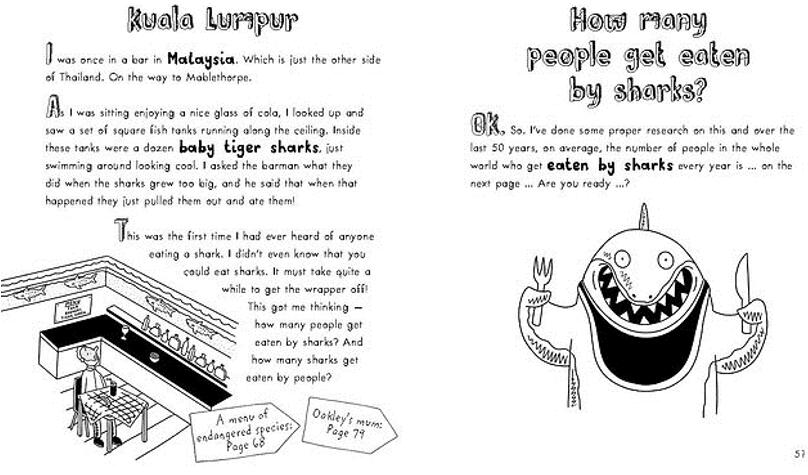 Kuala Lumpur
I was once in a bar in Malaysia. Which is just the other side
of Thailand. On the way to Mablethorpe.
As I was sitting enjoying a nice glass of cola, I looked up and
saw a set of square fish tanks running along the ceiling. Inside
these tanks were a dozen baby tiger sharks, just
swimming around looking cool. I asked the barman what they
did when the sharks grew too big, and he said that when that
happened they just pulled them out and ate them!
This was the first time I had ever heard of anyone
eating a shark. I didn't even know that you
could eat sharks. It must take quite a
while to get the wrapper off!
This got me thinking –
how many people get
eaten by sharks? And
how many sharks get
eaten by people?
A menu of
endangered species:
Page 68
Oakley's mum:
Page 79
How many
people get eaten
by sharks?
OK, So, I've done some proper research on this and over the
last 50 years, on average, the number of people in the whole
world who get eaten by sharks every year is ... on the
next page ... Are you ready ...?
57